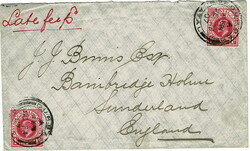 Late fee
J. J. Binns Esq
Bainbridge Holme
Sunderland
England